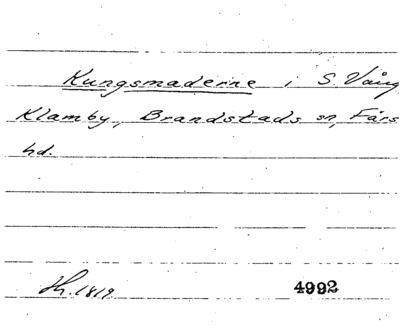 Kungsmaderne i S. Vång
Klamby, Brandstads sn, Färs
hd.
Lh. 1819 4992